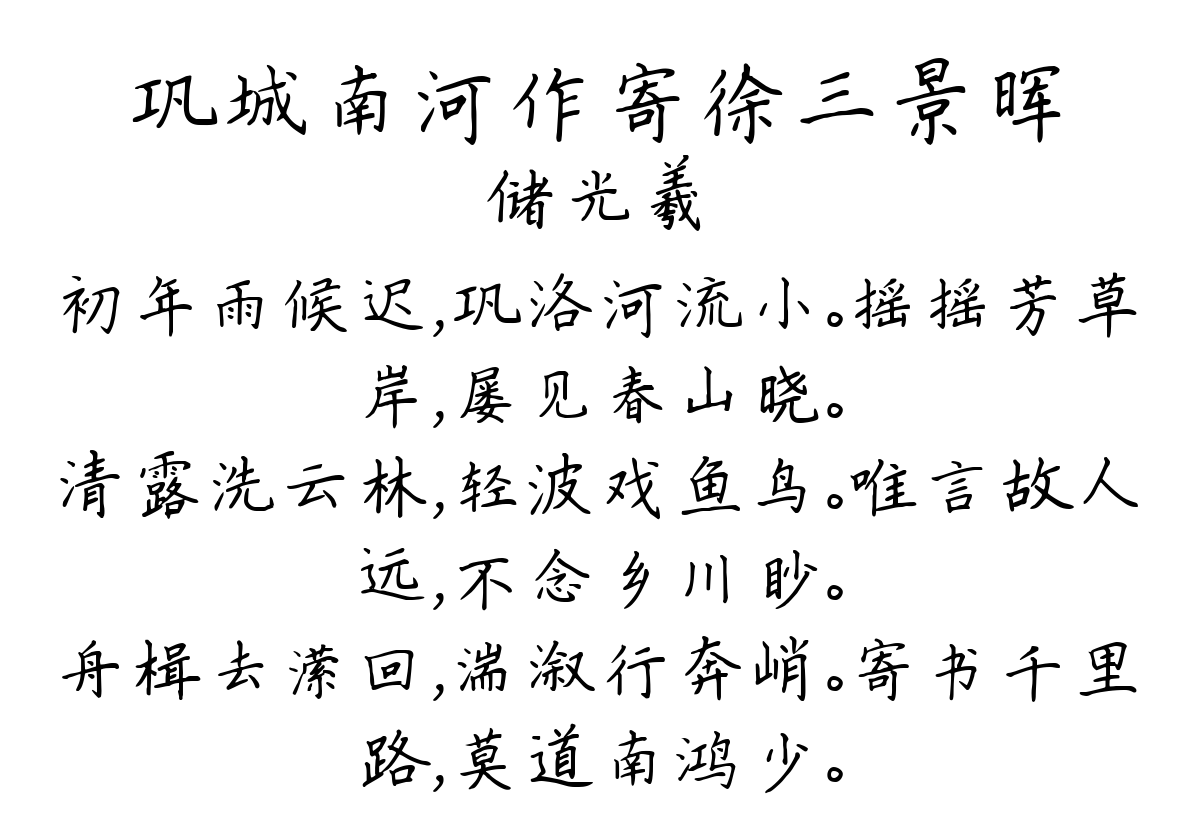 巩城南河作寄徐三景晖
储光羲
初年雨候迟,巩洛河流小。摇摇芳草
岸,屡见春山晓。
清露洗云林,轻波戏鱼鸟。唯言故人
远,不念乡川眇。
舟楫去潆回,湍溆行奔峭。寄书千里
路,莫道南鸿少。